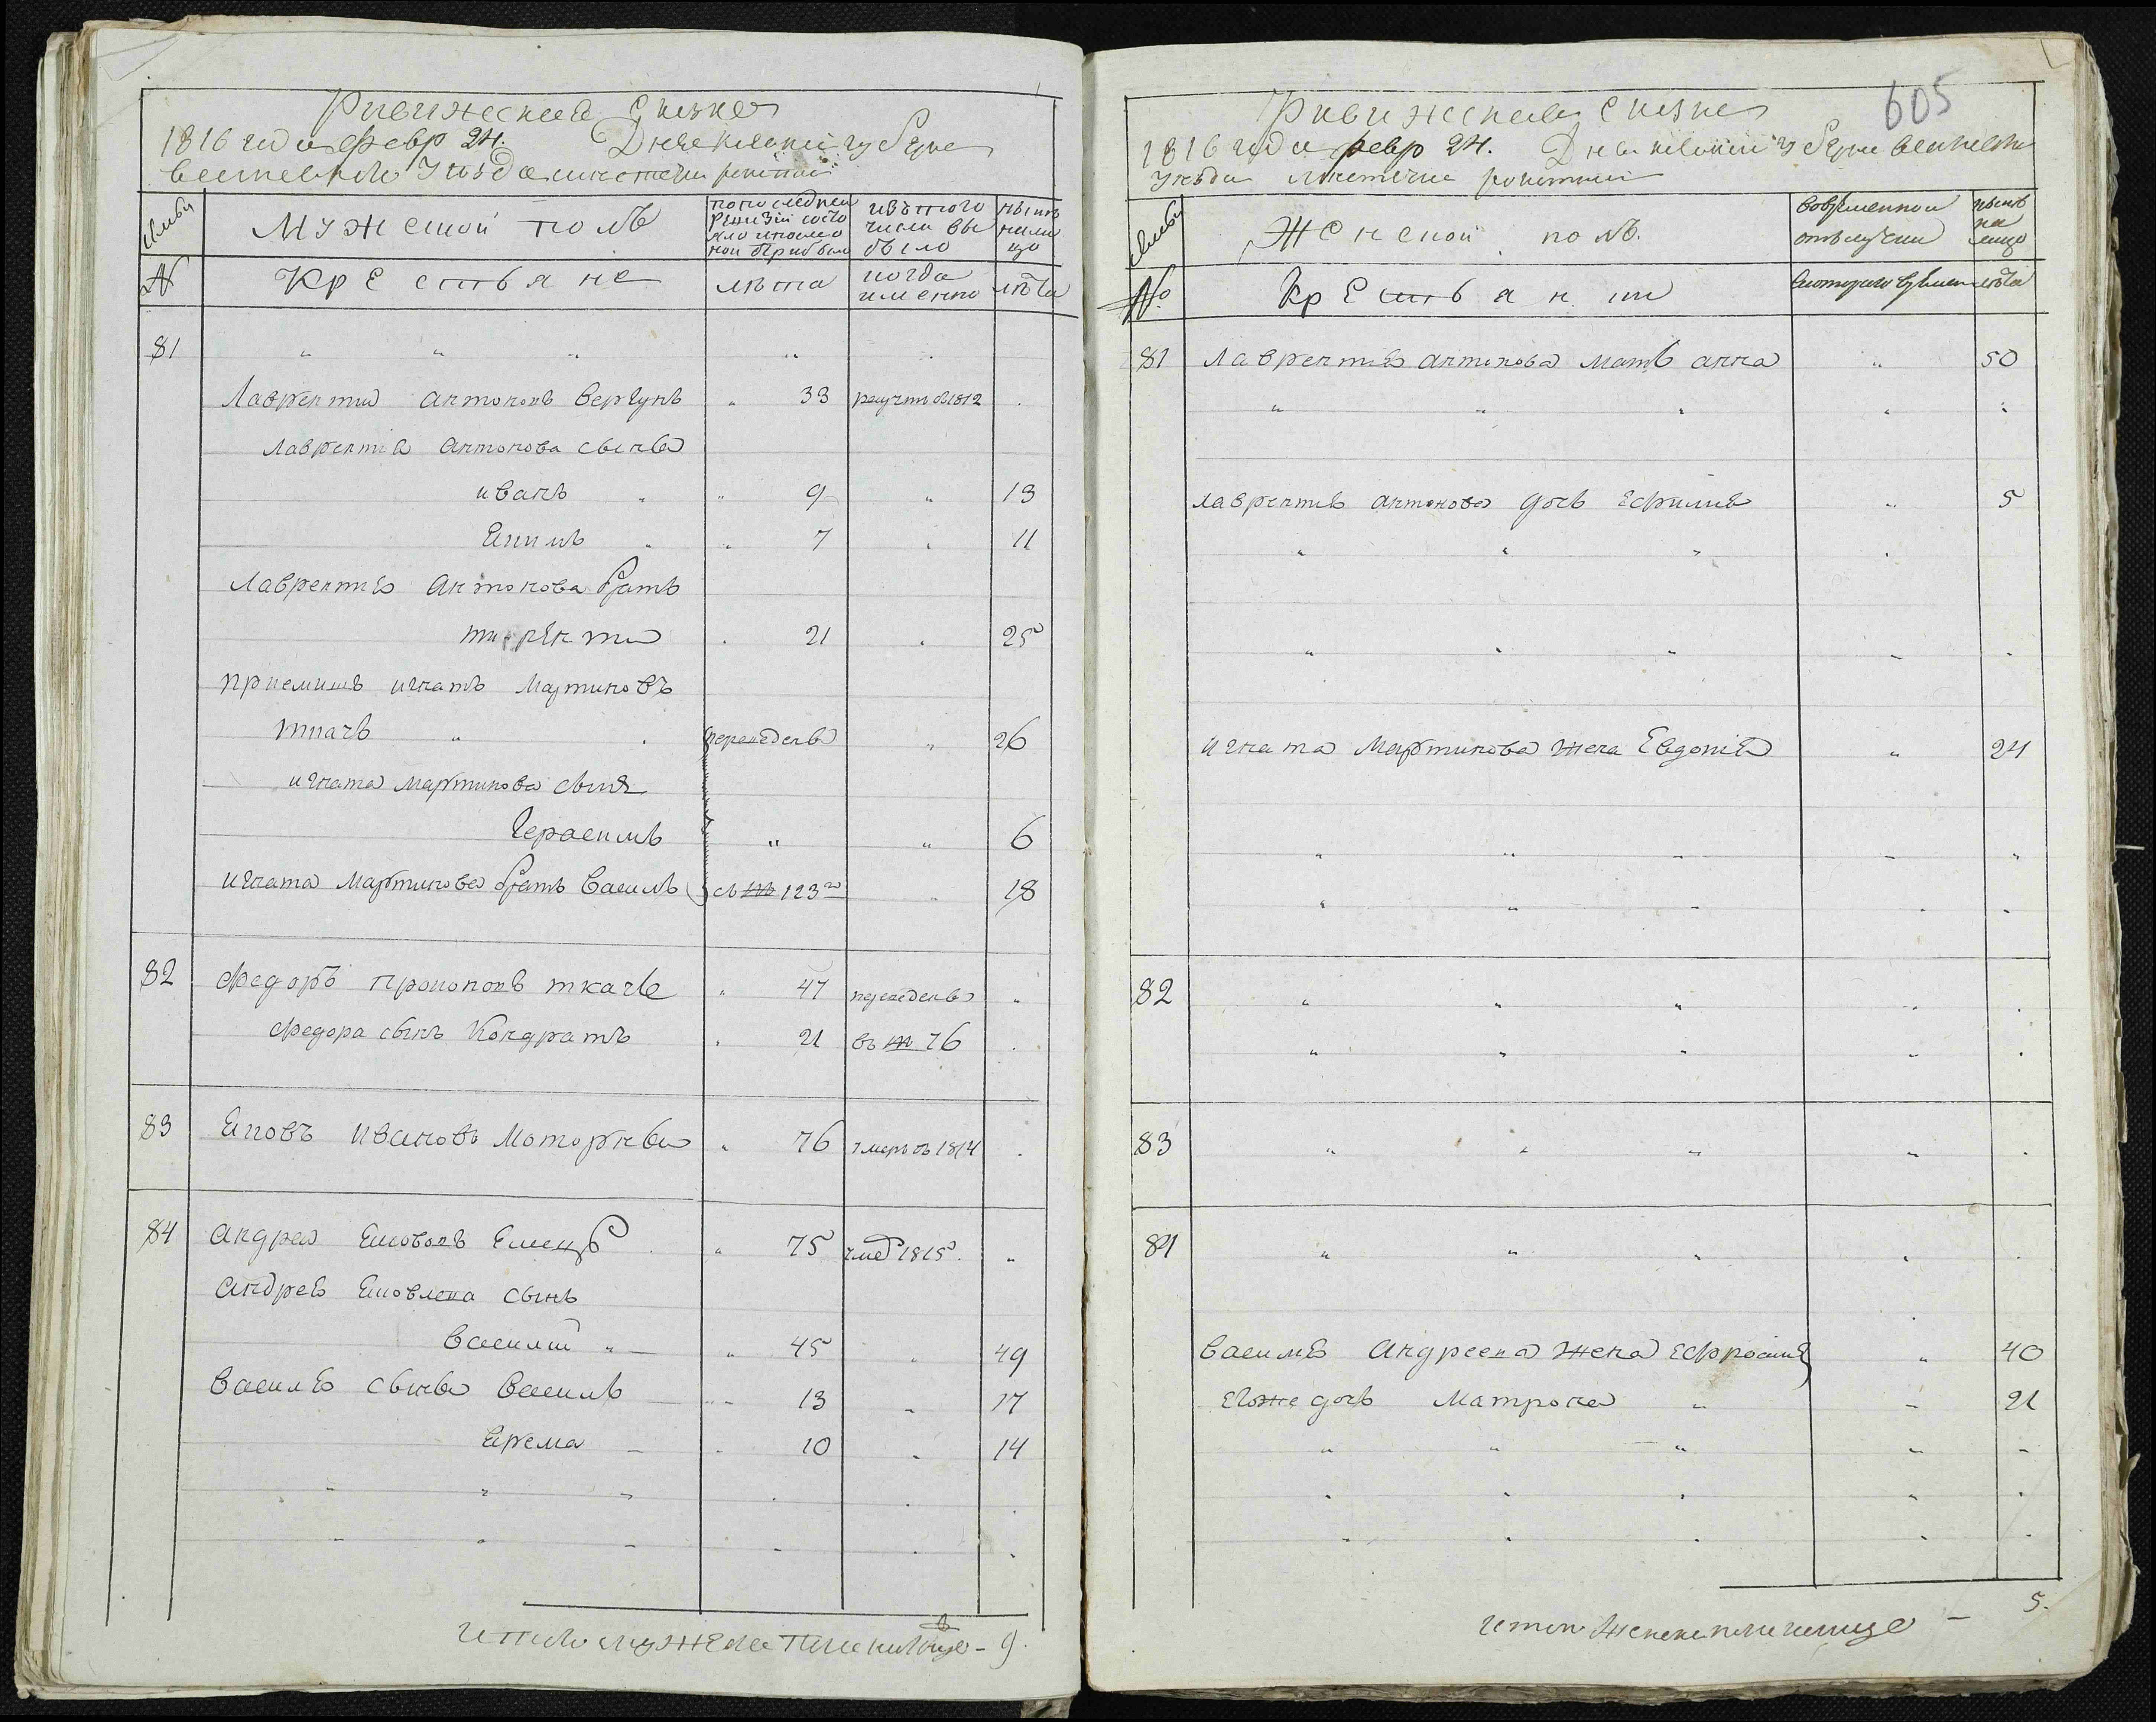 Ривижская Скизка
1816 года Февр 24.
Уезда
семьи
Мужеской полъ
попоследней
ревизии состо
яло и после
ной прибыло
изътого
числа вы
было
нынъ
нали
цо
№
Крестьяне
лѣта
когда
именно
лѣта
81
Лаврентий Антоновъ Вергунъ 33 1812
Лаврентия Антонова сынва
иванъ 9 13
Екимъ 7 11
Лаврентия Антонова братъ
терентий 21 25
приемишъ игнатъ Мартиновъ
ткачъ переведенъ 26
игната Мартинова сынъ
Герасимъ 6
игната Мартинова братъ Василь съ № 123го 18
82 Федоръ Прокоповъ ткачь 47 переведенъ
Федора сынъ Кондратъ 21 въ № 76
83 Яковъ Ивановъ Моторный 76 умеръ въ 1814
84 Андрей Яковлевъ 75 1815
Андрея Яковлева сынъ
Василий 45 49
Василя сынва Василь 13 17
Ярема 10 14
итого мужеска пола налицо - 9.
605
Ривижская Скизка
1816 года февр 24.
уезда
семьи
Женской полъ.
вовременной
отлучки
нынѣ
на
лицо
№
Крестьянки
скоторого времени
лѣта
81 Лаврентия Антонова мать анна 50
Лаврентия Антонова дочь Ефимия 5
игната Мартинова жена Евдокия 24
82
83
84
Василия Андреева жена Ефросиния 40
Егоже дочь Матрона 21
итого женска пола налицо - 5.